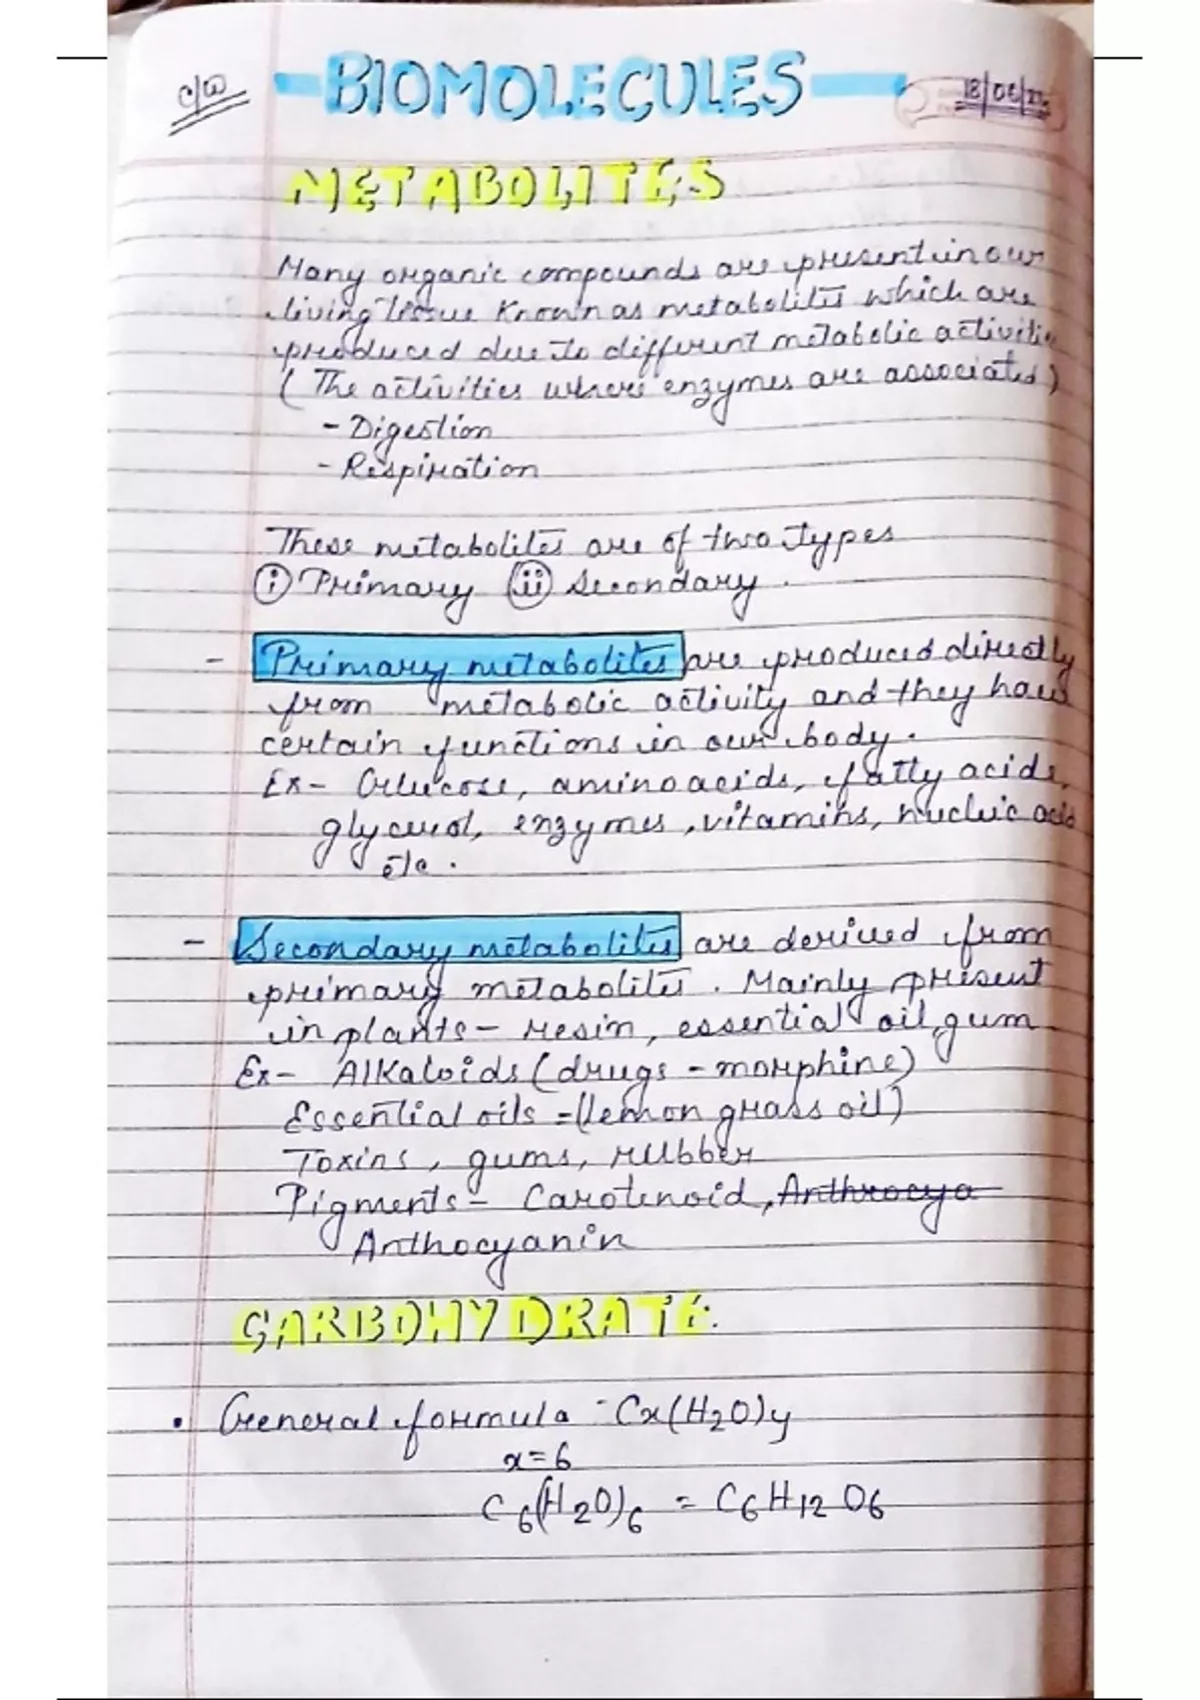 C/W
BIOMOLECULES
METABOLITES
Many organic compounds are present in our
living tissue known as metabolites which are
produced due to different metabolic activities
(The activities where enzymes are associated)
- Digestion
- Respiration
These metabolites are of two types
(i) Primary (ii) Secondary.
- Primary metabolites are produced directly
from metabolic activity and they have
certain functions in our body.
Ex- Glucose, amino acids, fatty acids,
glycerol, enzymes, vitamins, nucleic acid
etc.
- Secondary metabolites are derived from
primary metabolites. Mainly present
in plants- resin, essential oil, gum
Ex- Alkaloids (drugs - morphine)
Essential oils - (lemon grass oil)
Toxins, gums, rubber
Pigments - Carotenoid, Anthrocya
Anthocyanin
CARBOHYDRATE.
• General formula - Cx(H2O)y
x=6
C6(H2O)6 = C6H12O6